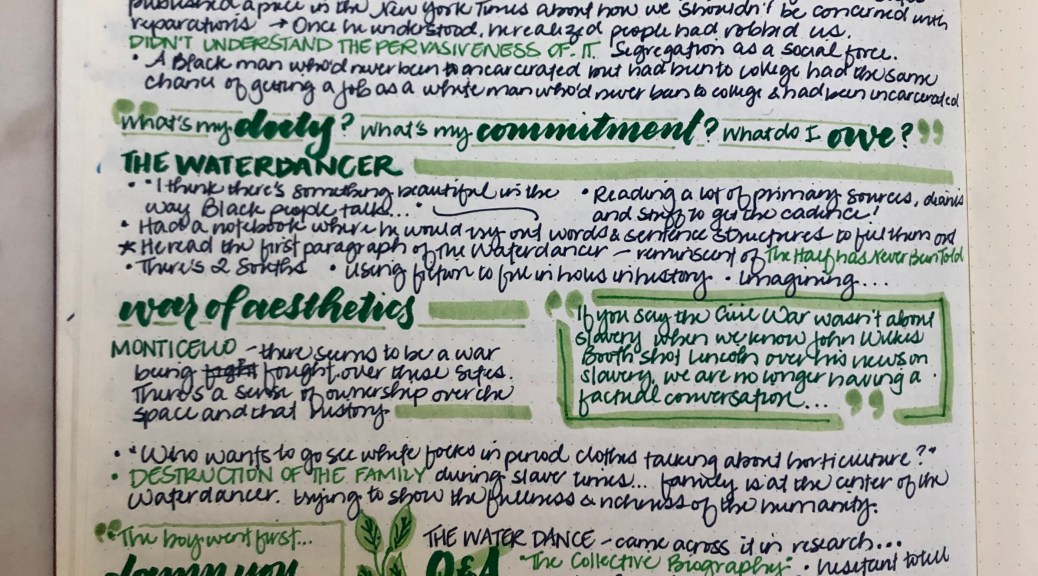 published a piece in the New York Times about how we shouldn't be concerned with
reparations → Once he understood, he realized people had robbed us.
DIDN'T UNDERSTAND THE PERVASIVENESS OF IT. Segregation as a social force.
• A Black man who'd never been incarcerated but had been to college had the same
chance of getting a job as a white man who'd never been to college & had been incarcerated
"What's my duty? What's my commitment? What do I owe?"
THE WATERDANCER
• "I think there's something beautiful in the
way Black people talk..."
• Reading a lot of primary sources, diaries
and stuff to get the cadence!
• Had a notebook where he would try out words & sentence structures to feel them out
★ He read the first paragraph of The Waterdancer - reminiscent of The Half has Never Been Told
• There's 2 Souths • Using fiction to fill in holes in history. • Imagining...
war of aesthetics
MONTICELLO - there seems to be a war
being fought over these sites.
There's a sense of ownership over the
space and that history
"If you say the Civil War wasn't about
slavery when we know John Wilkes
Booth shot Lincoln over his views on
slavery, we are no longer having a
factual conversation..."
• "Who wants to go see white folks in period clothes talking about horticulture?"
• DESTRUCTION OF THE FAMILY during slave times... family is at the center of the
Waterdancer. trying to show the fullness & richness of the humanity.
"The boy went first...
damn you
THE WATER DANCE - came across it in research...
Q&A "The Collective Biography" • hesitant to tell